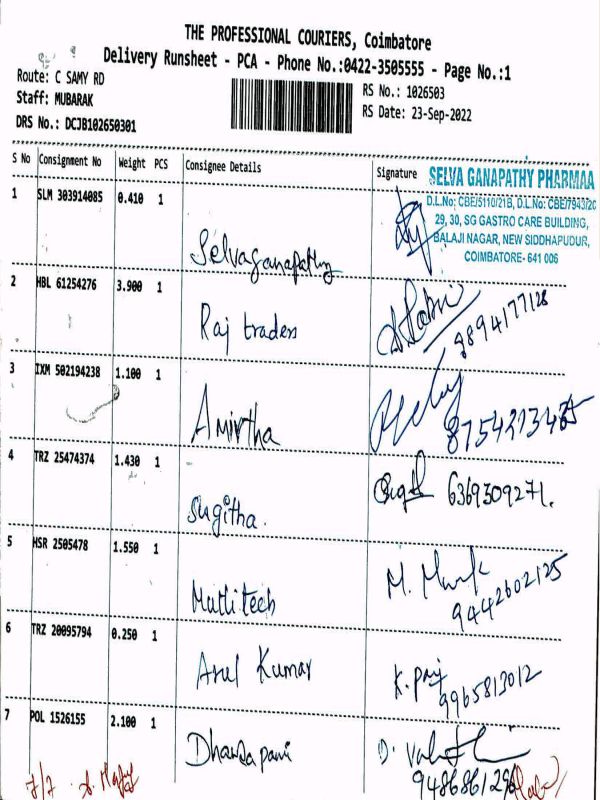 THE PROFESSIONAL COURIERS, Coimbatore
Delivery Runsheet - PCA - Phone No.:0422-3505555 - Page No.:1
Route: C SAMY RD
RS No.: 1026503
Staff: MUBARAK
RS Date: 23-Sep-2022
DRS No.: DCJB102650301
S No Consignment No Weight PCS Consignee Details Signature
SELVA GANAPATHY PHARMAA
D.L.No; CBE/5110/21B, D.L.No:
29, 30, SG GASTRO CARE BUILDING,
BALAJI NAGAR, NEW SIDDHAPUDUR,
COIMBATORE- 641 006
1 SLM 303914085 0.410 1
Selvaganapathy
2 HBL 61254276 3.900 1
Raj traders
8894177128
3 IXM 502194238 1.100 1
Amirtha
4 TRZ 25474374 1.430 1
Sugitha.
6369309271.
5 HSR 2505478 1.550 1
Multitech
9442602125
6 TRZ 20095794 0.250 1
Arul Kumar
9965813012
7 POL 1526155 2.100 1
Dhandapani
7/7